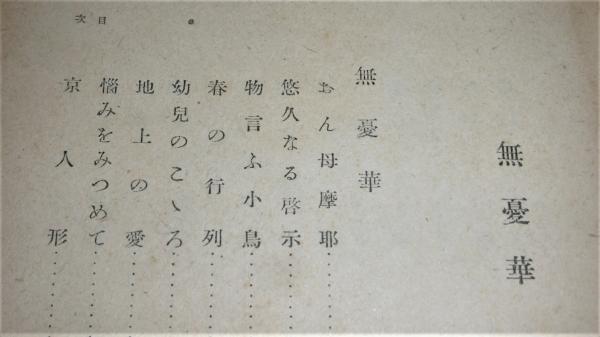 無憂華
無憂華
おん母摩耶……
悠久なる啓示……
物言ふ小鳥……
春の行列……
幼兒のこゝろ……
地上の愛……
惱みをみつめて……
京人形……
目次